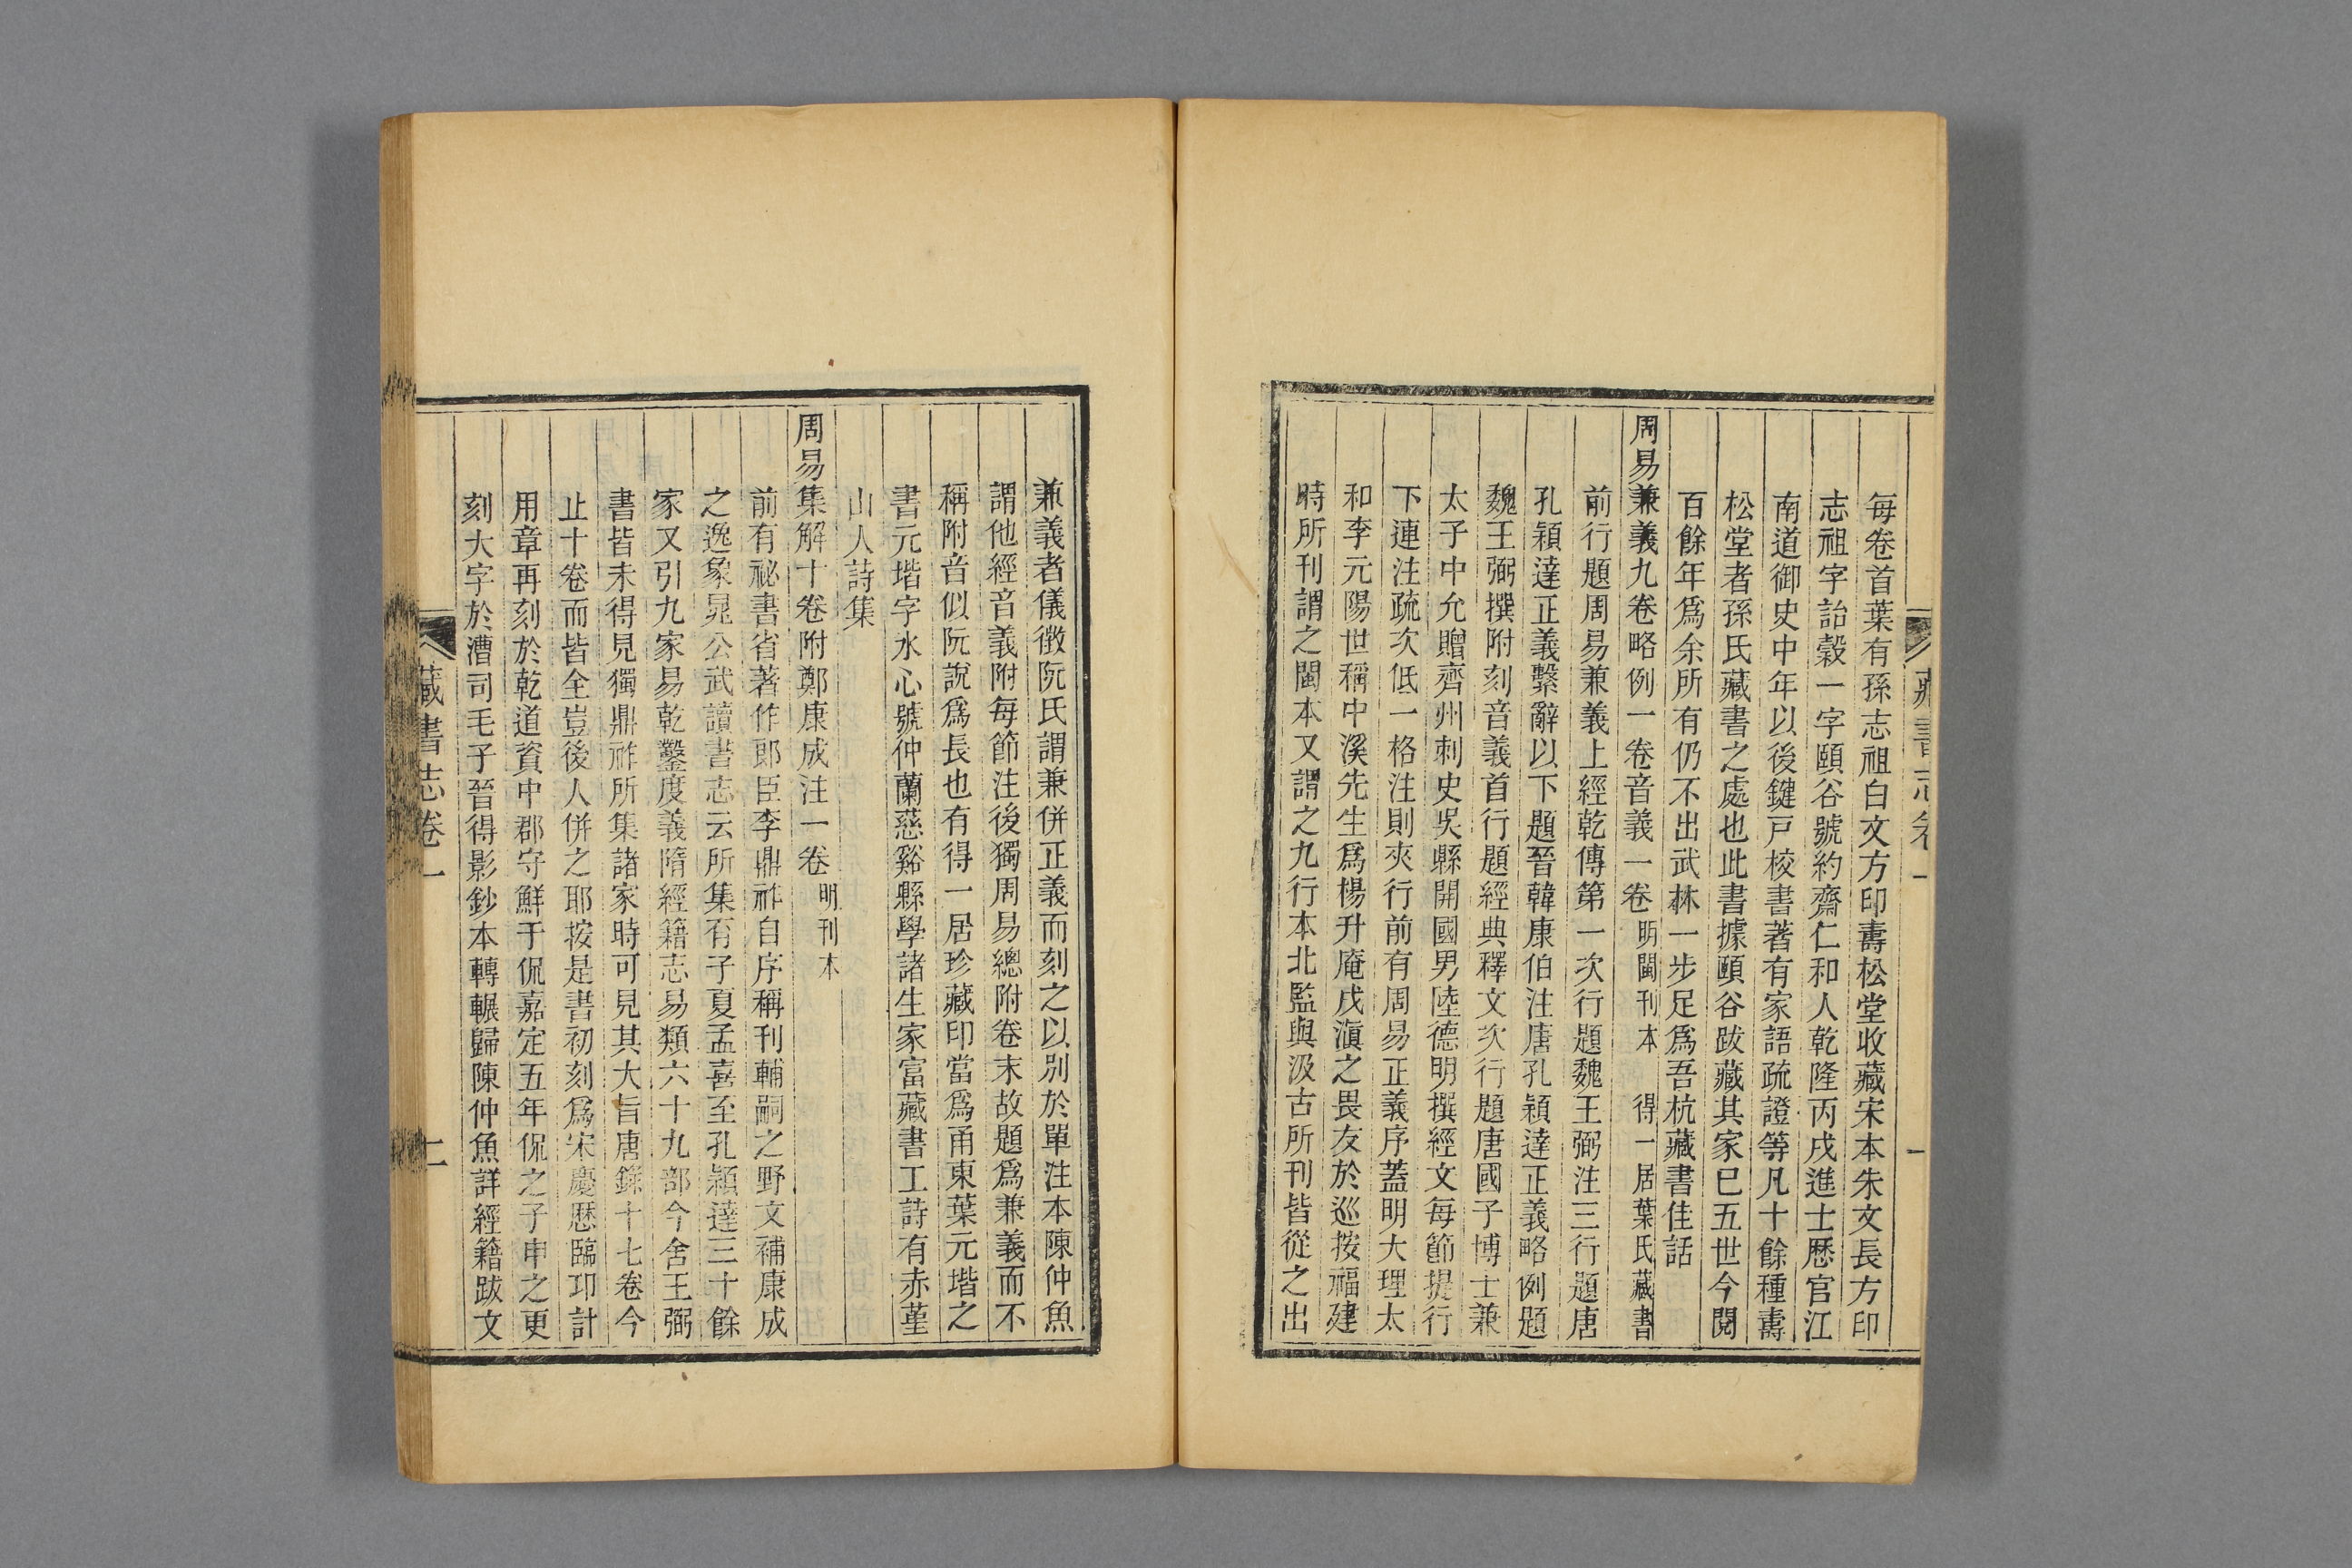 每卷首葉有孫志祖白文方印壽松堂收藏宋本朱文長方印
志祖字詒穀一字頤谷號約齋仁和人乾隆丙戌進士歷官江
南道御史中年以後鍵戸校書著有家語疏證等凡十餘種壽
松堂者孫氏藏書之處也此書據頤谷跋藏其家已五世今閱
百餘年爲余所有仍不出武林一步足爲吾杭藏書佳話
周易兼義九卷略例一卷音義一卷明閩刊本 得一居葉氏藏書
前行題周易兼義上經乾傳第一次行題魏王弼注三行題唐
孔穎達正義繫辭以下題晉韓康伯注唐孔穎達正義略例題
魏王弼撰附刻音義首行題經典釋文次行題唐國子博士兼
太子中允贈齊州刺史吳縣開國男陸德明撰經文每節提行
下連注疏次低一格注則夾行前有周易正義序蓋明大理太
和李元陽世稱中溪先生爲楊升庵戍滇之畏友於巡按福建
時所刊謂之閩本又謂之九行本北監與汲古所刊皆從之出
藏書志卷一
一
兼義者儀徵阮氏謂兼併正義而刻之以別於單注本陳仲魚
謂他經音義附每節注後獨周易總附卷末故題爲兼義而不
稱附音似阮說爲長也有得一居珍藏印當爲甬東葉元堦之
書元堦字水心號仲蘭慈谿縣學諸生家富藏書工詩有赤堇
山人詩集
周易集解十卷附鄭康成注一卷明刊本
前有祕書省著作郎臣李鼎祚自序稱刊輔嗣之野文補康成
之逸象晁公武讀書志云所集有子夏孟喜至孔穎達三十餘
家又引九家易乾鑿度義隋經籍志易類六十九部今舍王弼
書皆未得見獨鼎祚所集諸家時可見其大旨唐錄十七卷今
止十卷而皆全豈後人併之耶按是書初刻爲宋慶歷臨卭計
用章再刻於乾道資中郡守鮮于侃嘉定五年侃之子申之更
刻大字於漕司毛子晉得影鈔本轉輾歸陳仲魚詳經籍跋文
藏書志卷一
二